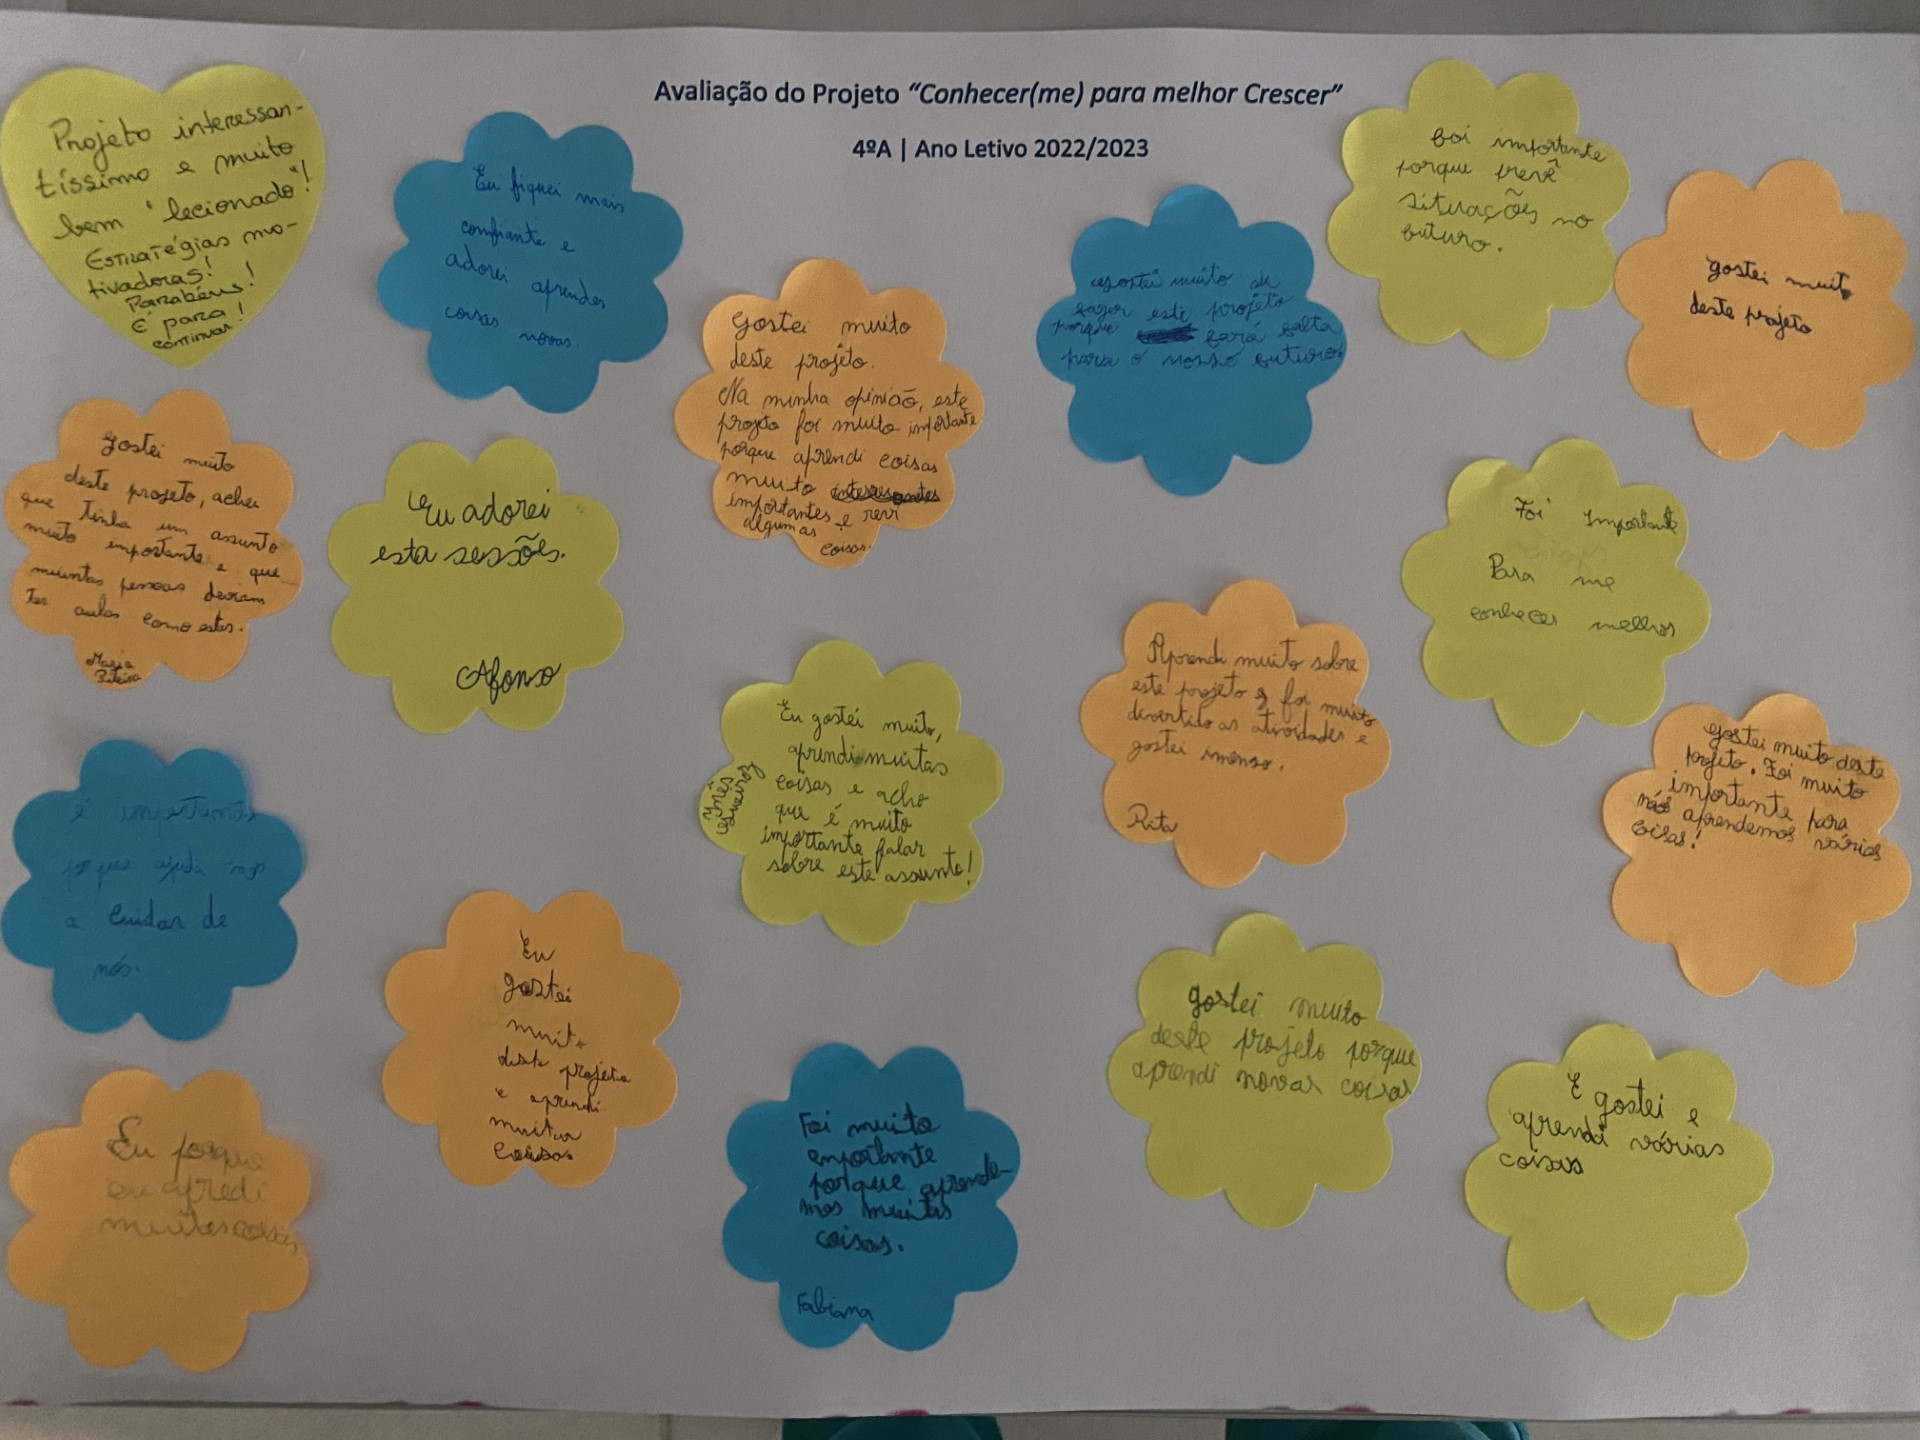 Avaliação do Projeto “Conhecer(me) para melhor Crescer”
4ºA | Ano Letivo 2022/2023
Projeto interessan-
tíssimo e muito
bem "lecionado"!
Estratégias mo-
tivadoras!
Parabéns!
É para!
continuar!
Eu fiquei mais
confiante e
adorei aprender
coisas novas.
Gostei muito
deste projeto.
Na minha opinião, este
projeto foi muito importante
porque aprendi coisas
muito
importantes e revi
algumas
coisas.
muito de
fazer este projeto
porque fará falta
para o nosso futuro.
Foi importante
porque prevê
situações no
futuro.
gostei muito
deste projeto
Gostei muito
deste projeto, achei
que tinha um assunto
muito importante e que
muintas pessoas deviam
ter aulas como estas.
Maria
Eu adorei
esta sessões.
Afonso
Foi Importante
Para me
conhecer melhor
Aprendi muito sobre
este projeto e foi muito
divertido as atividades e
gostei imenso.
Rita
Eu gostei muito,
aprendi muitas
coisas e acho
que é muito
importante falar
sobre este assunto!
Inês
gostei muito deste
projeto. Foi muito
importante para
nós aprendemos várias
coisas!
é importante
porque ajuda-nos
a cuidar de
nós.
Eu
gostei
muito
deste projeto
e aprendi
muitas
coisas
gostei muito
deste projeto porque
aprendi novas coisas
Foi muito
enportante
porque aprende-
mos muintas
coisas.
Fabiana
E gostei e
aprendi várias
coisas
Eu porque
eu apredi
muitas coisas